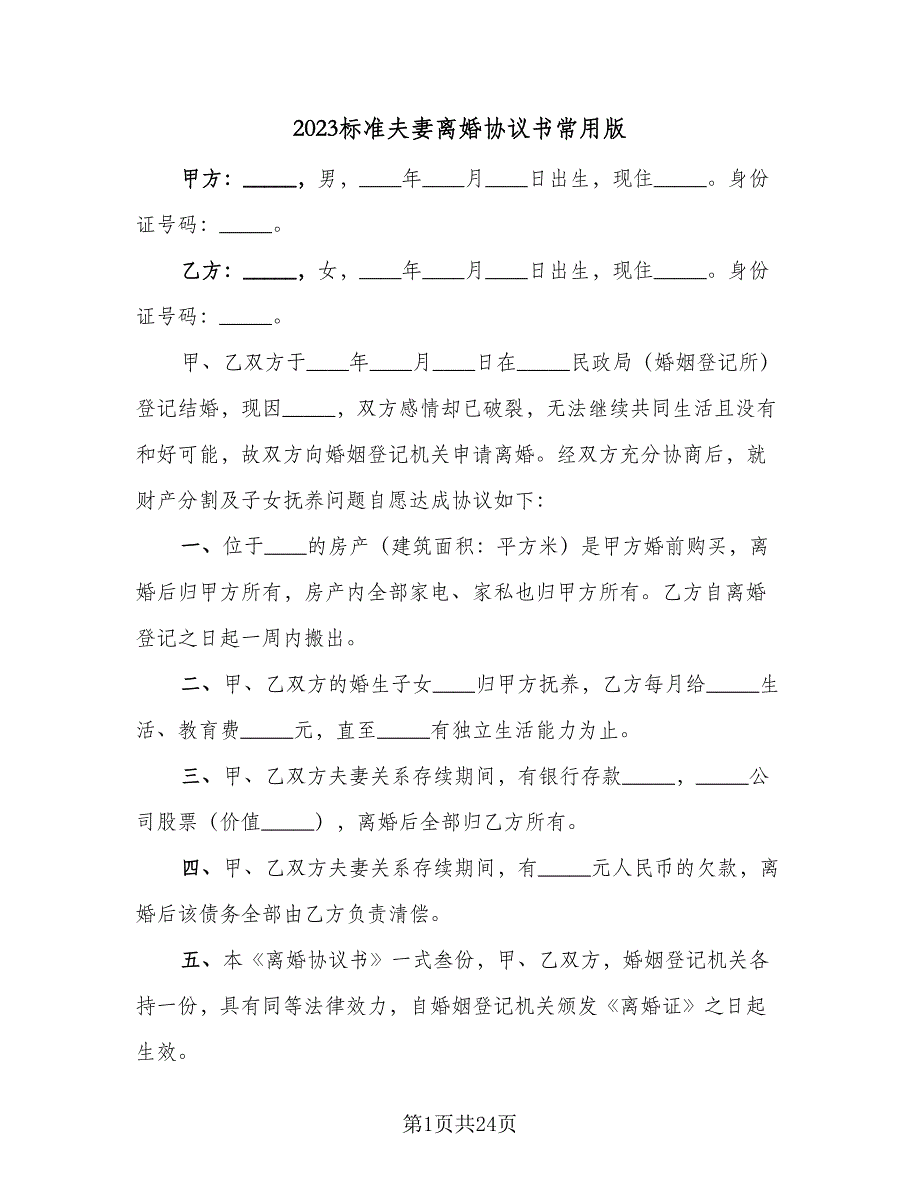 2023标准夫妻离婚协议书常用版
甲方：_____，男，____年____月____日出生，现住_____。身份
证号码：_____。
乙方：_____，女，____年____月____日出生，现住_____。身份
证号码：_____。
甲、乙双方于____年____月____日在_____民政局（婚姻登记所）
登记结婚，现因_____，双方感情却已破裂，无法继续共同生活且没有
和好可能，故双方向婚姻登记机关申请离婚。经双方充分协商后，就
财产分割及子女抚养问题自愿达成协议如下：
一、位于____的房产（建筑面积：平方米）是甲方婚前购买，离
婚后归甲方所有，房产内全部家电、家私也归甲方所有。乙方自离婚
登记之日起一周内搬出。
二、甲、乙双方的婚生子女____归甲方抚养，乙方每月给_____生
活、教育费_____元，直至_____有独立生活能力为止。
三、甲、乙双方夫妻关系存续期间，有银行存款_____，_____公
司股票（价值_____），离婚后全部归乙方所有。
四、甲、乙双方夫妻关系存续期间，有_____元人民币的欠款，离
婚后该债务全部由乙方负责清偿。
五、本《离婚协议书》一式叁份，甲、乙双方，婚姻登记机关各
持一份，具有同等法律效力，自婚姻登记机关颁发《离婚证》之日起
生效。
第1页共24页